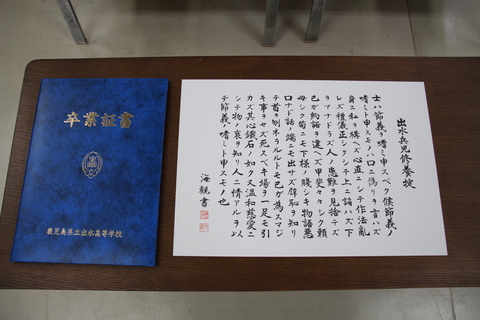 卒業証書
鹿児島県立出水高等学校
出水兵児修養掟
士ハ節義ヲ嗜ミ申スベク候節義ノ
嗜ミト申スモノハ口ニ偽リヲ言ハズ
身ニ私ヲ構ヘズ心直ニシテ作法乱
レズ礼儀正シクシテ上ニ諂ハズ下
ヲアナドラズ人ノ患難ヲ見捨テズ
己ガ約諾ヲ違ヘズ甲斐々々シク頼
母シク苟ニモ下様ノ賤シキ物語悪
口ナド話ノ端ニモ出サズ譬恥ヲ知リ
テ首ヲ刎ネラルルトモ己ガ為スマジ
キ事ヲセズ死スベキ場ヲ一足モ引
カズ其心鐵石ノ如ク又温和慈愛ニ
シテ物ノ哀ヲ知リ人ニ情アルヲ以
テ節義ノ嗜ミト申スモノ也
海観書